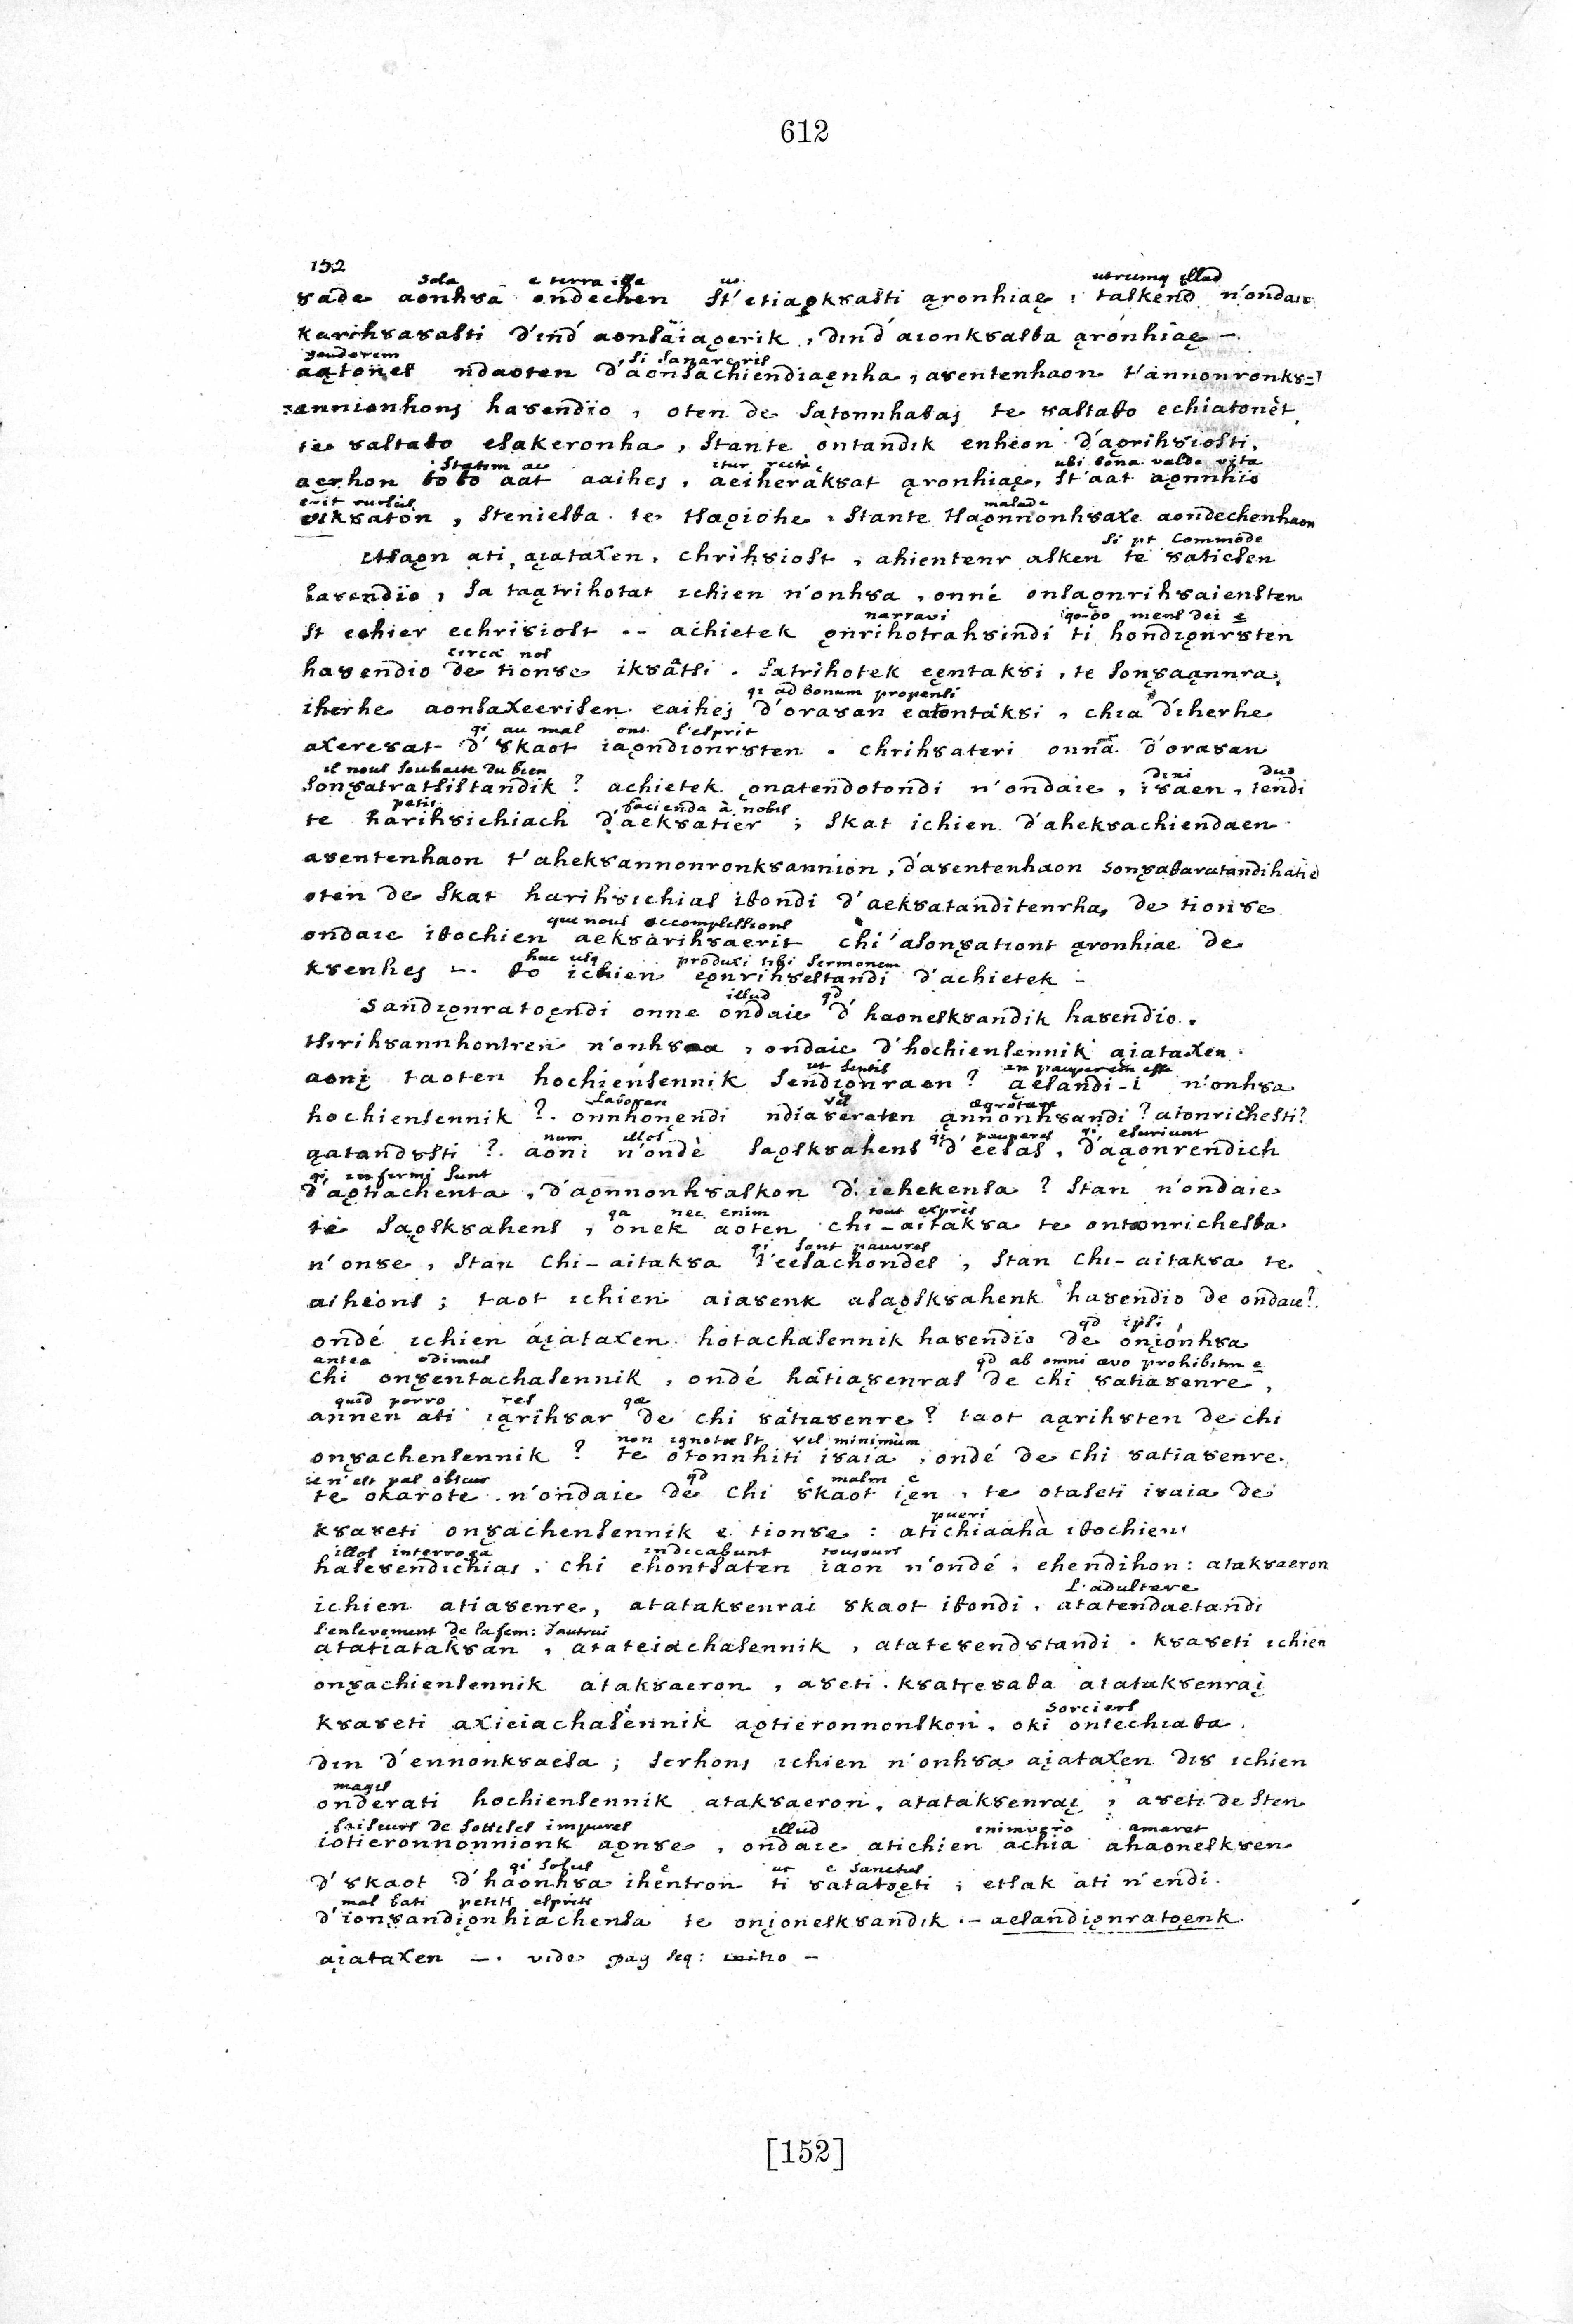 612
152
sola e terra ista ubi utrumq illud
ȣade aonhȣa ondechen st'etiaokȣasti aronhiae, taskend n'ondaie
karihȣaȣasti d'ind aonsaiaoerik, dind aionkȣasta aronhiae —.
gauderem si sanareris
aatones ndaoten d'aonsachiendiaenha, aȣentenhaon t'annonronkȣ=
=annionhons haȣendio, oten de satonnhatas te ȣastato echiatonèt,
te ȣastato esakeronha, stante ontandik enheon d'aorihȣiosti,
statim ac itur recte ubi bona valde vita
aerhon toto aat aaihes, aeiherakȣat aronhiae, st'aat aonnhio
erit rursus malade
eikȣaton, steniesta te tsaoiohe, stante tsaonnonhȣaxe aondechenhaon
si pt commode
etsaon ati, aiataxen, chrihȣiost, ahientenr asken te ȣatiesen
haȣendio, sa taatrihotat ichien n'onhȣa, onné onsaonrihȣaiensten
narravi qo-do mens dei e
st echier echriȣiost -- achietek onrihotrahȣindi ti hondionrȣsten
circa nos
haȣendio de tionȣe ikȣatsi. satrihotek eentakȣi, te sonȣaannra,
qi ad bonum propensi
iherhe aonsaxeerisen eaihes d'oraȣan eatontakȣi, chia d'iherhe
qi au mal ont l'esprit
axereȣat d'ȣkaot iaondionrȣsten. chrihȣateri onna d'oraȣan
il nous souhaite du bien dixi duo
sonȣatratsistandik? achietek onatendotondi n'ondaie, iȣaen, tendi
petit facienda à nobis
te harihȣichiach d'aekȣatier; skat ichien d'ahekȣachiendaen
aȣentenhaon t'ahekȣannonronkȣannion, d'aȣentenhaon sonȣataratandihatie
oten de skat harihȣichias itondi d'aekȣatanditenrha, de tionȣe
que nous accomplissions
ondaie itochien aekȣarihȣaerit chi'asonȣ ationt aronhiae de
huc usq produxi tibi sermonem
kȣenhes —. to ichien eonrihȣestandi d'achietek -
illud qd
sandionratoendi onne ondaie d'haoneskȣandik haȣendio.
tsrihȣannhontren n'onhȣa, ondaie d'hochiensennik aiataxen.
ut sentis an pauperem esse
aoni taoten hochiensennik sendionraon? aesandi-i n'onhȣa
laborare vel ægrotare
hochiensennik? onnhonendi ndiaȣeraten annonhȣandi? atonrichesti?
num illos qi pauperes qi esuriunt
aatandȣsti? aoni n'ondè saoskȣahens d'eesas, d'aaonrendich
qi infirmi sunt
d'aotiachenta, d'aonnonhȣaskon d'iehekensa? stan n'ondaie
qa nec enim tout exprès
te saoskȣahens, onek aoten chi-aitakȣa te ontonrichesta
qi sont pauvres
n'onȣe, stan chi-aitakȣa d'eesachondes, stan chi-aitakȣa te
aiheons; taot ichien aiaȣenk asaoskȣahenk haȣendio de ondaie?
qd ipsi
ondé ichien aiataxen hotachasennik haȣendio de onionhȣa
antea odimus qd ab omni ævo prohibitm e
chi onȣentachasennik, ondé hatiaȣenras de chi ȣatiaȣenre,
quid porro res qæ
annen ati iarihȣar de chi ȣatiaȣenre? taot aarihȣten de chi
non ignota st vel minimùm
onȣachensennik? te otonnhiti iȣaia, ondé de chi ȣatiaȣenre.
ce n'est pas obscur qd e malm e
te okarote n'ondaie de chi ȣkaot ien, te otaseti iȣaia de
pueri
kȣaȣeti onȣachensennik e tionȣe: atichiaaha itochien
illos interroga indicabunt tousours
haseȣendichias. chi ehontsaten iaon n'ondé, ehendihon: atakȣaeron
l'adultere
ichien atiaȣenre, atatakȣenrai ȣkaot itondi, atatendaetandi
l'enlevement de la fem: d'autrui
atatiatakȣan, atateiachasennik, atateȣendȣtandi. kȣaȣeti ichien
onȣachiensennik atakȣaeron, aȣeti. kȣatreȣ ata atatakȣenrai
sorciers
kȣaȣeti axieiachasennik aotieronnonskon, oki ontechiata,
din d'ennonkȣaesa; serhons ichien n'onhȣa aiataxen diȣ ichien
magis
onderati hochiensennik atakȣaeron, atatakȣenrai, aȣeti de sten
faiseurs de sottises impures illud enimvero amaret
iotieronnonnionk aonȣe, ondaie atichien achia ahaoneskȣen
qi solus e ut e sanctus
d'ȣkaot d'haonhȣa ihentron ti ȣatatoeti; etsak ati n'endi.
mal bati petits esprits
d'ionȣandionhiachensa te onioneskȣandik .- aesandionratoenk.
aiataxen —. vide pag seq: initio —
[152]